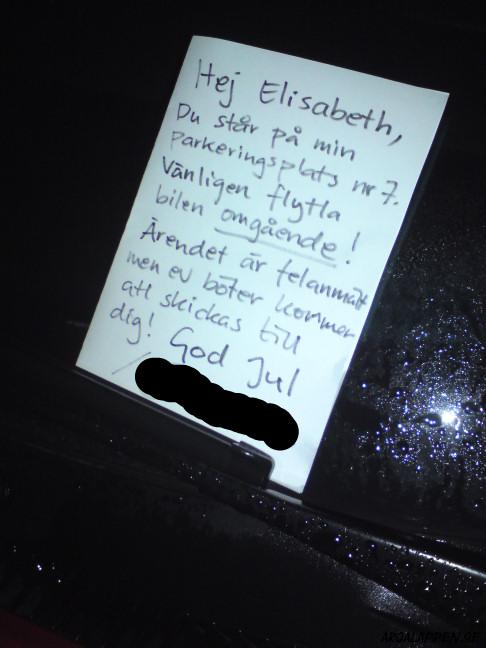 Hej Elisabeth,
Du står på min
parkeringsplats nr 7.
Vänligen flytta
bilen omgående!
Ärendet är felanmält
men ev böter kommer
att skickas till
dig! God Jul
/
ARGALAPPEN.SE